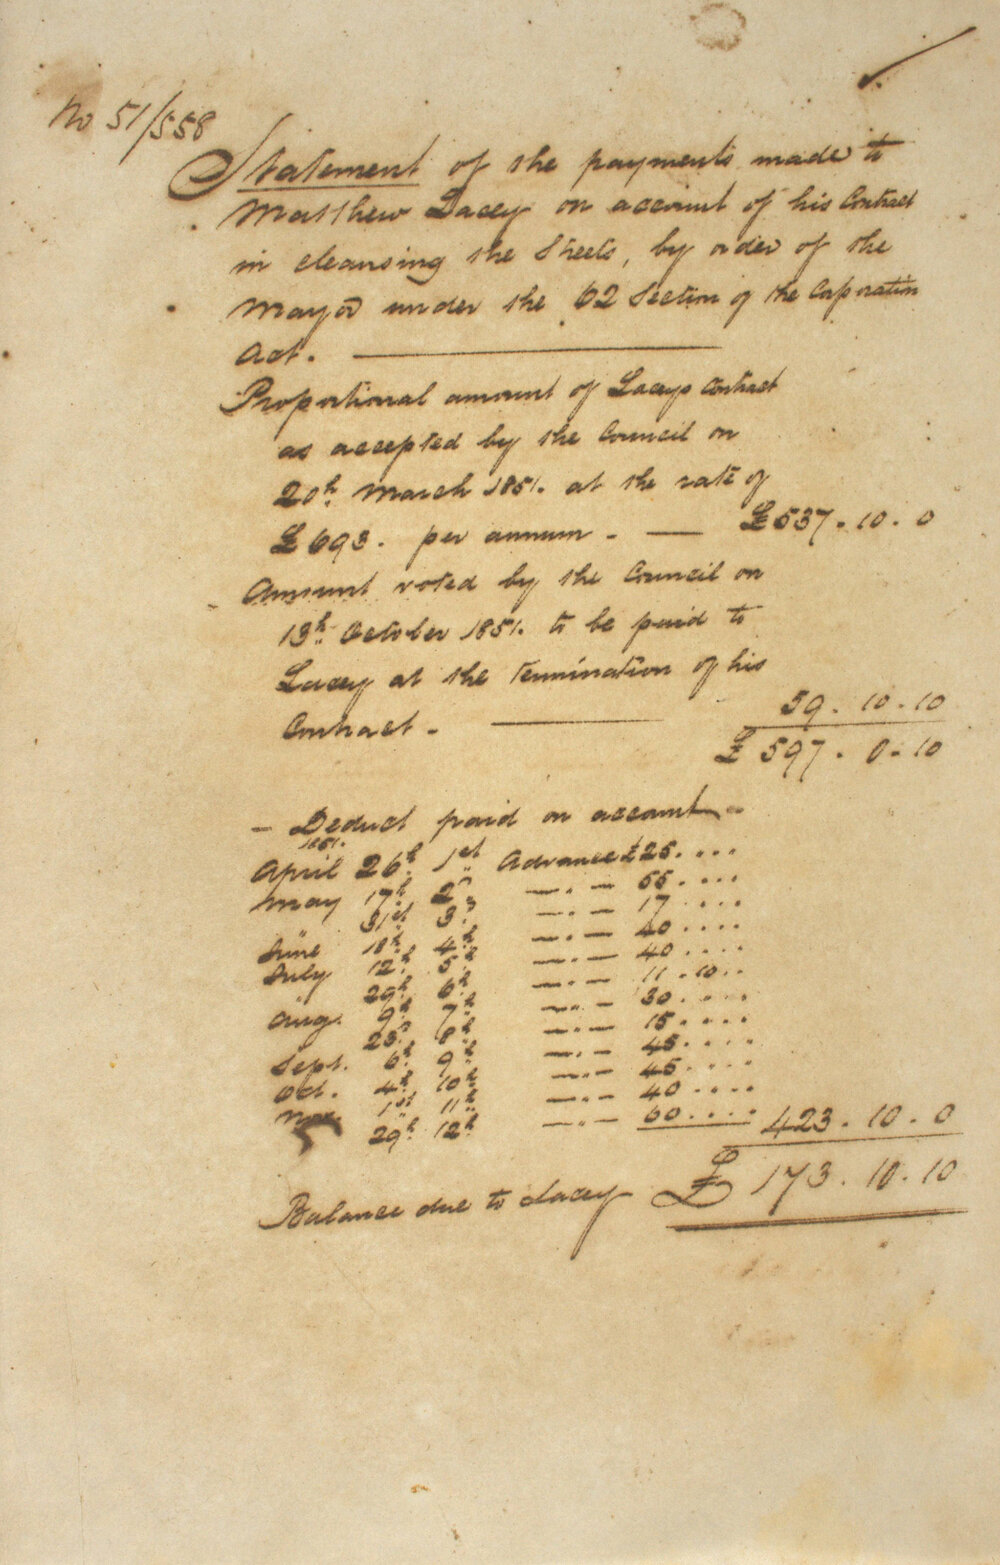 No 51/558
Statement of the payments made to
Matthew Lacey on account of his Contract
in cleansing the Streets, by order of the
Mayor under the 62 Section of the Corporation
Act.
Proportional amount of Laceys Contract
as accepted by the Council on
20h March 1851. at the rate of
£693. per annum - £537.10.0
Amount voted by the Council on
13h October 1851. to be paid to
Lacey at the termination of his
Contract. 59.10.10
£597.0.10
- Deduct paid on account -
1851.
April 26h 1st Advance £25....
May 17h 2d —"— 55....
31st 3d —"— 17....
June 18h 4h —"— 40....
July 12h 5h —"— 40....
29h 6h —"— 11.10..
Aug. 9h 7h —"— 30....
23d 8h —"— 15....
Sept. 6h 9h —"— 45....
Oct. 4h 10h —"— 45....
Nov. 1st 11h —"— 40....
29h 12h —"— 60.... 423.10.0
Balance due to Lacey £173.10.10